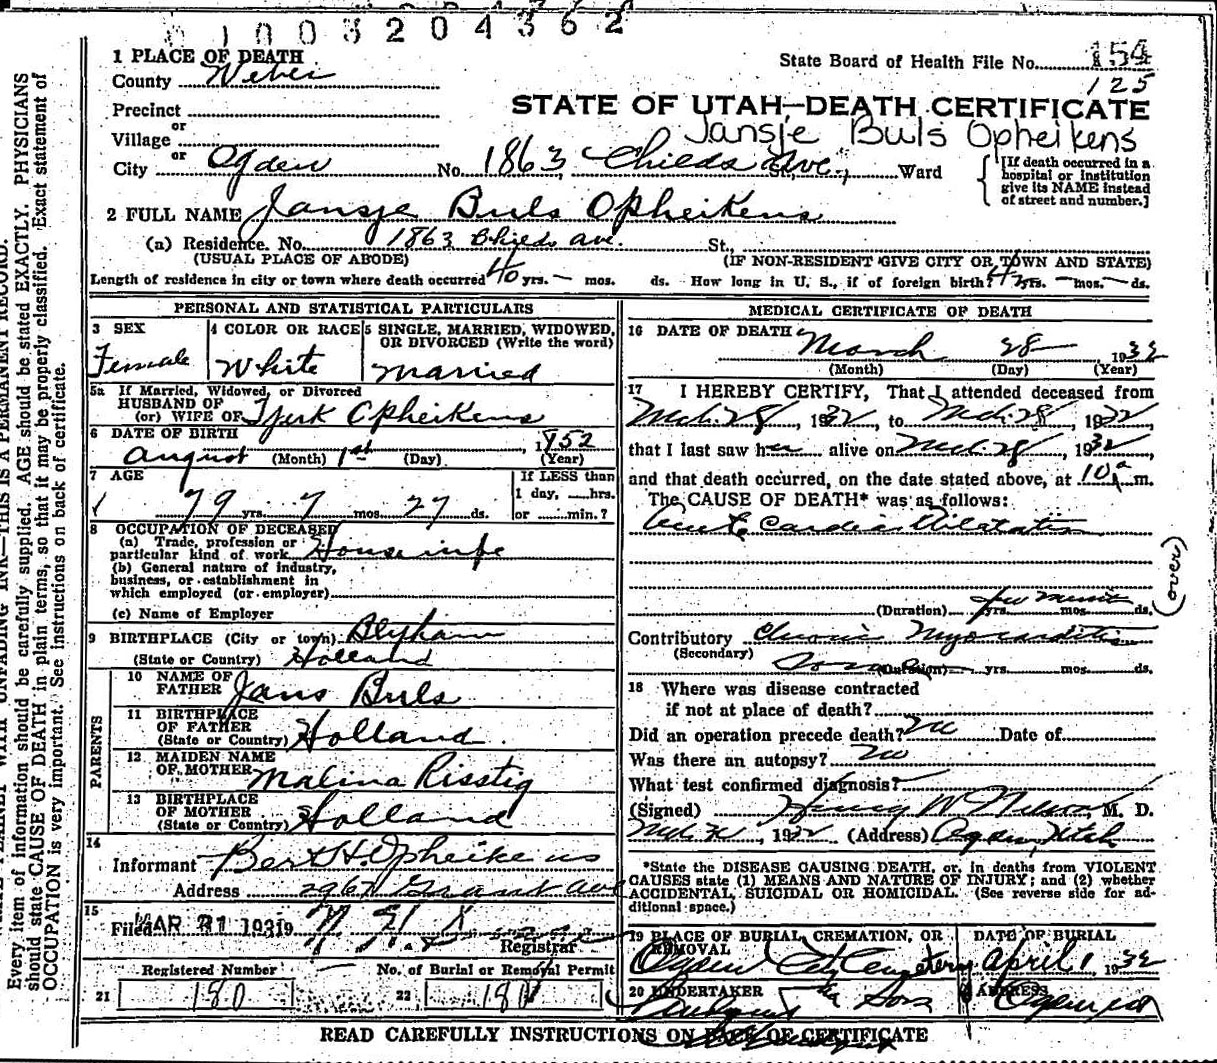 1003204362
1 PLACE OF DEATH
County Weber
State Board of Health File No. 154
125
Precinct
or
Village
or
STATE OF UTAH—DEATH CERTIFICATE
Jansje Buls Opheikens
City Ogden No. 1863 Childs Ave., St., Ward
[If death occurred in a
hospital or institution
give its NAME instead
of street and number.]
2 FULL NAME Jansje Buls Opheikens
(a) Residence. No. 1863 Childs ave. St.,
(USUAL PLACE OF ABODE) (IF NON-RESIDENT GIVE CITY OR TOWN AND STATE)
Length of residence in city or town where death occurred 40 yrs. — mos. ds. How long in U. S., if of foreign birth? yrs. — mos. — ds.
PERSONAL AND STATISTICAL PARTICULARS
3 SEX
Female
4 COLOR OR RACE
White
5 SINGLE, MARRIED, WIDOWED,
OR DIVORCED (Write the word)
Married
5a If Married, Widowed, or Divorced
HUSBAND OF
(or) WIFE OF Tjerk Opheikens
6 DATE OF BIRTH
August 1st 1852
(Month) (Day) (Year)
7 AGE
79 yrs. 7 mos. 27 ds.
If LESS than
1 day, hrs.
or min.?
8 OCCUPATION OF DECEASED
(a) Trade, profession or
particular kind of work Housewife
(b) General nature of industry,
business, or establishment in
which employed (or employer)
(c) Name of Employer
9 BIRTHPLACE (City or town)
(State or Country) Holland
PARENTS
10 NAME OF
FATHER Jans Buls
11 BIRTHPLACE
OF FATHER
(State or Country) Holland
12 MAIDEN NAME
OF MOTHER Malina Risstig
13 BIRTHPLACE
OF MOTHER
(State or Country) Holland
14
Informant Bert H Opheikens
Address Grant ave
15
Filed MAR 31 1932 19
Registrar
Registered Number No. of Burial or Removal Permit
21 180 22 180
MEDICAL CERTIFICATE OF DEATH
16 DATE OF DEATH
March 28 1932
(Month) (Day) (Year)
17 I HEREBY CERTIFY, That I attended deceased from
Mch. 28, 1932, to Mch. 28, 1932
that I last saw her alive on Mch. 28, 1932
and that death occurred, on the date stated above, at 10 a m.
The CAUSE OF DEATH* was as follows:
Acute Cardiac Dilatation
(over)
(Duration) few minutes yrs. mos. ds.
Contributory Chronic Myocarditis
(Secondary)
(Duration) yrs. mos. ds.
18 Where was disease contracted
if not at place of death?
Did an operation precede death? no Date of
Was there an autopsy? no
What test confirmed diagnosis?
(Signed) Henry W Nelson, M. D.
1932 (Address) Ogden, Utah
*State the DISEASE CAUSING DEATH, or, in deaths from VIOLENT
CAUSES state (1) MEANS AND NATURE OF INJURY; and (2) whether
ACCIDENTAL, SUICIDAL OR HOMICIDAL. (See reverse side for ad-
ditional space.)
19 PLACE OF BURIAL, CREMATION, OR
REMOVAL
Ogden City Cemetery
DATE OF BURIAL
April 1 1932
20 UNDERTAKER
Sons
ADDRESS
READ CAREFULLY INSTRUCTIONS ON BACK OF CERTIFICATE
Every item of information should be carefully supplied. AGE should be stated EXACTLY. PHYSICIANS
should state CAUSE OF DEATH in plain terms, so that it may be properly classified. Exact statement of
OCCUPATION is very important. See instructions on back of certificate.
UNFADING INK—THIS IS A PERMANENT RECORD.